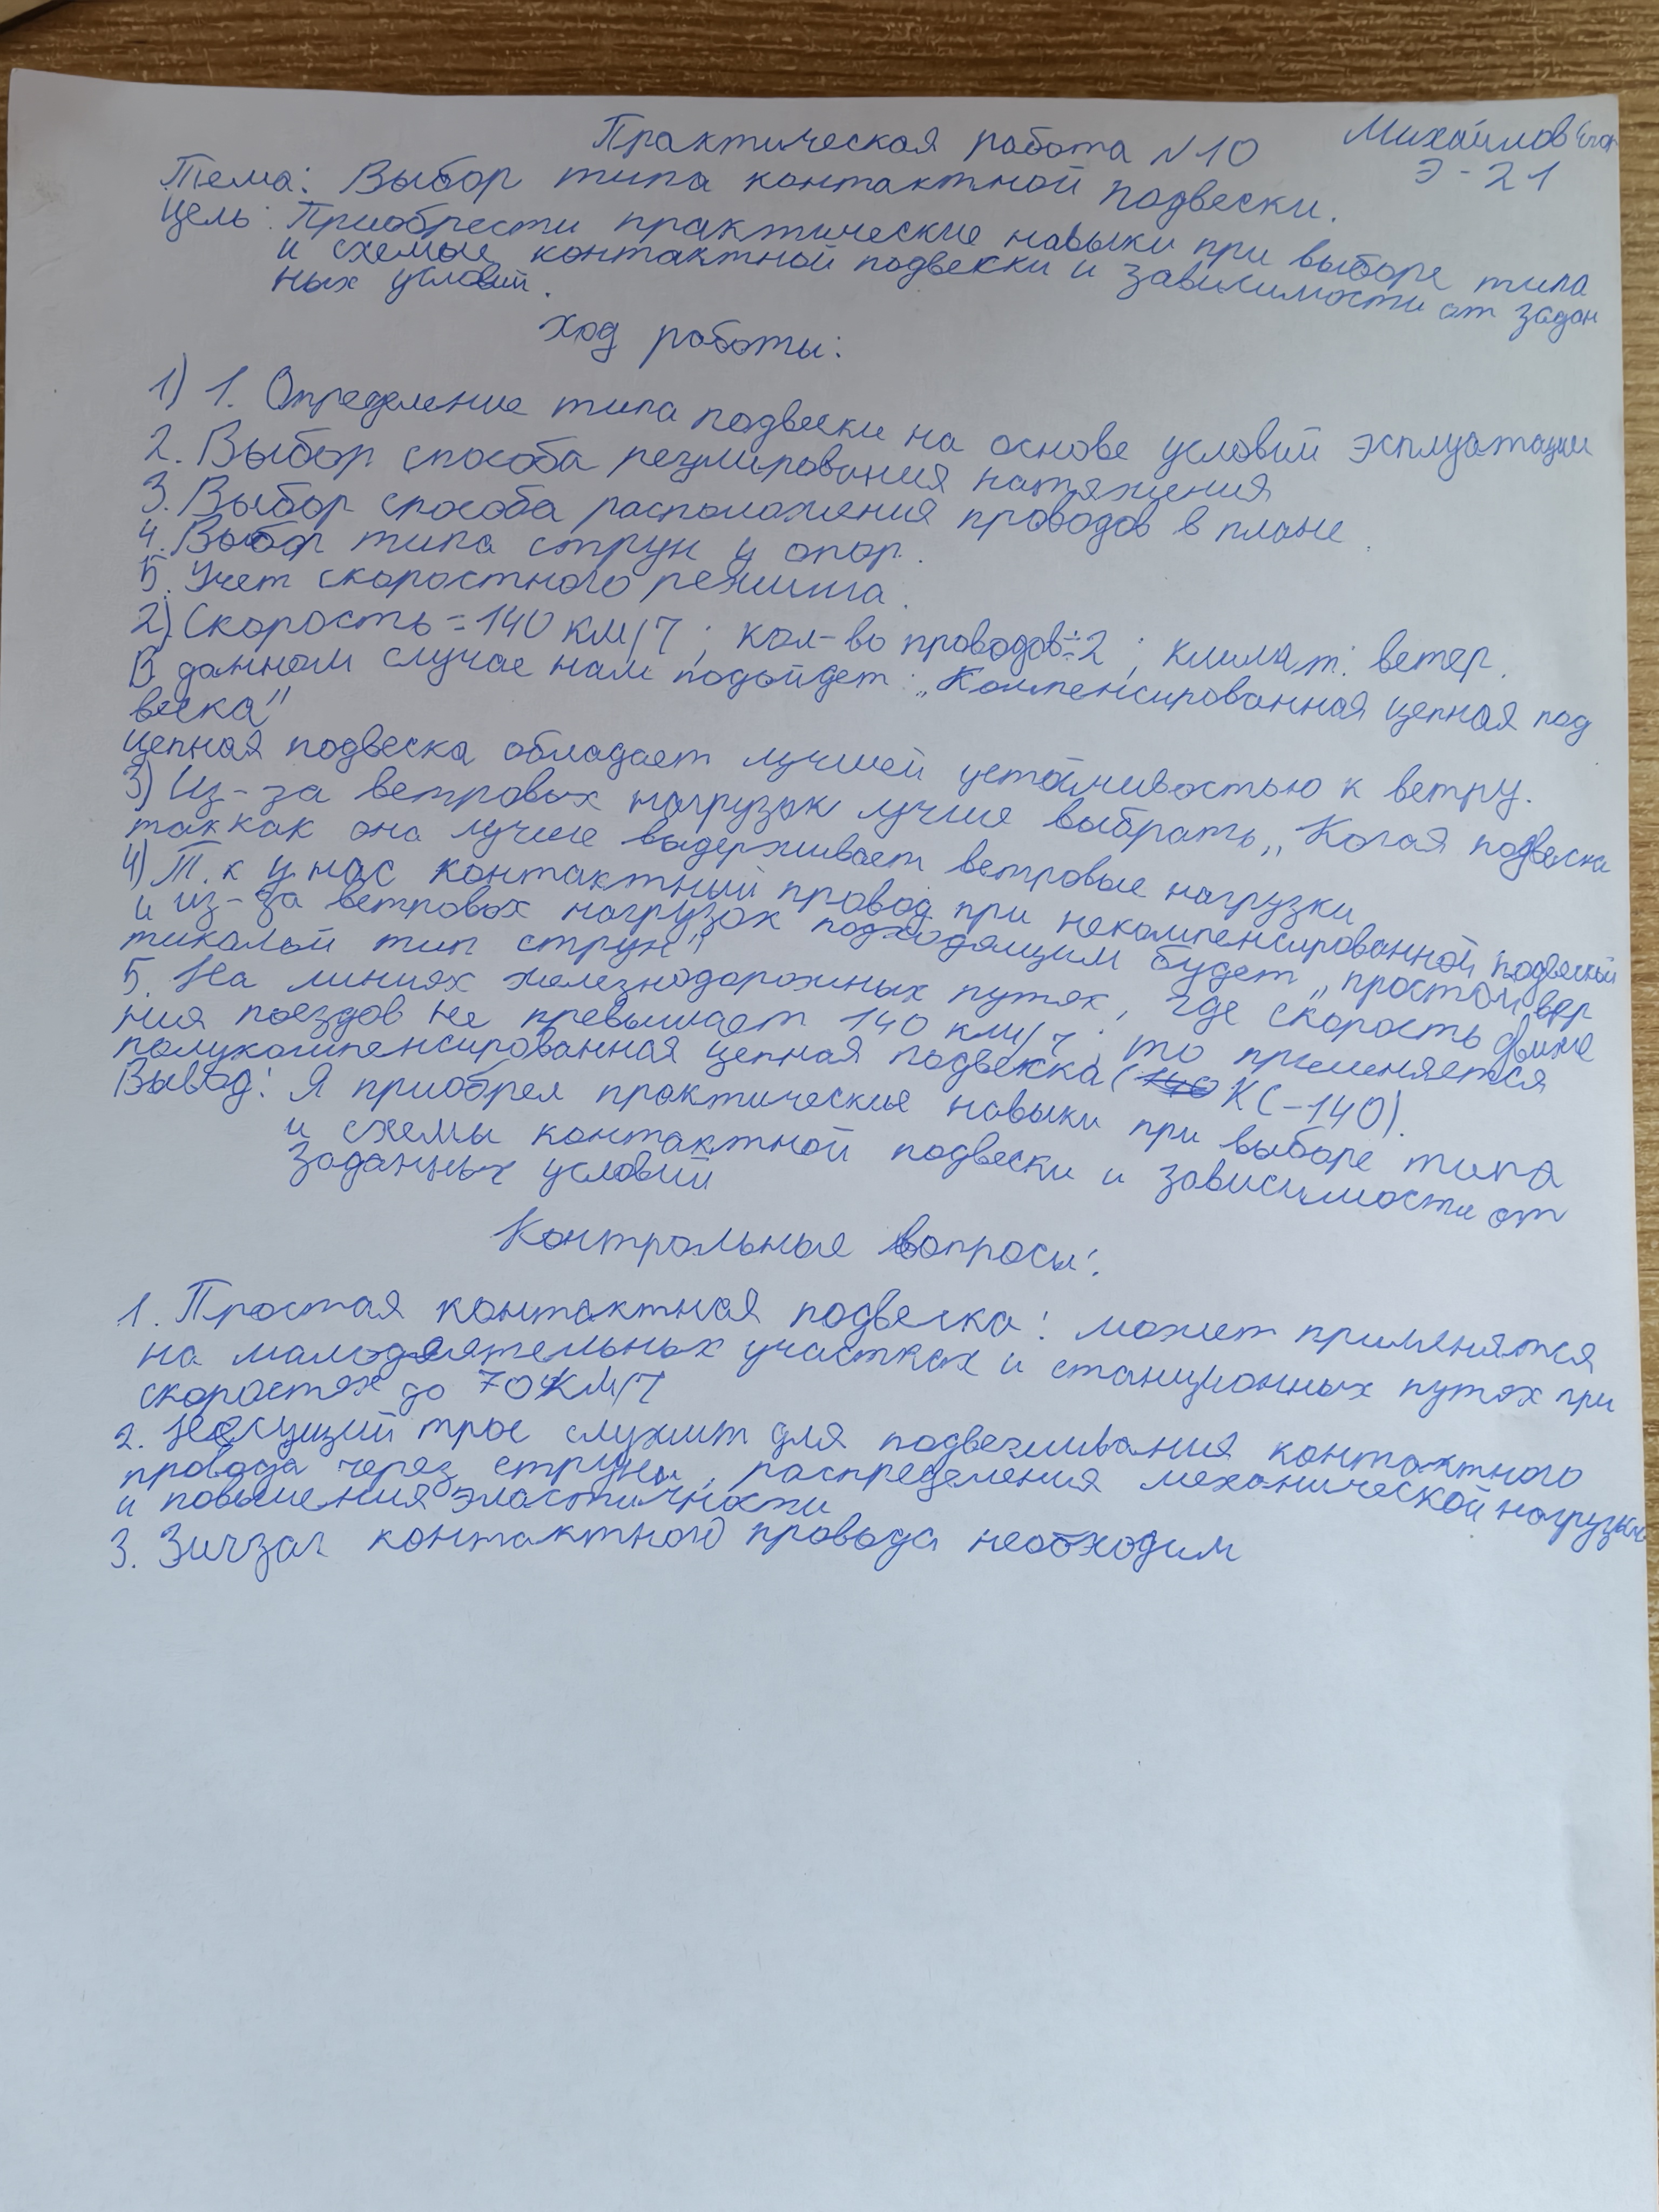 Практическая работа №10
Михайлов Егор
Э-21
Тема: Выбор типа контактной подвески.
Цель: Приобрести практические навыки при выборе типа
и схемы контактной подвески и зависимости от задан
ных условий.
Ход работы:
1) 1. Определение типа подвески на основе условий эксплуатации
2. Выбор способа регулирования натяжения
3. Выбор способа расположения проводов в плане.
4. Выбор типа струн и опор.
5. Учет скоростного режима.
2) Скорость = 140 км/ч; кол-во проводов=2; климат: ветер.
В данном случае нам подойдет: „Компенсированная цепная под
веска"
Цепная подвеска обладает лучшей устойчивостью к ветру.
3) Из-за ветровых нагрузок лучше выбрать „Косая подвеска
таккак она лучше выдерживает ветровые нагрузки
4) Т.к у нас контактный провод при некомпенсированной подвеской
и из-за ветровых нагрузок подходящим будет „простой вер
тикалый тип струн"
5. На линиях железнодорожных путях, где скорость движе
ния поездов не превышает 140 км/ч; то применяется
полукомпенсированная цепная подвеска (КС-140).
Вывод: Я приобрел практические навыки при выборе типа
и схемы контактной подвески и зависимости от
заданных условий
Контрольные вопросы:
1. Простая контактная подвеска: может применятся
на малодеятельных участках и станционных путях при
скоростях до 70 км/ч
2. Несущий трос служит для подвешивания контактного
провода через струны, распределения механической нагрузки
и повышения эластичности
3. Зигзаг контактного провода необходим